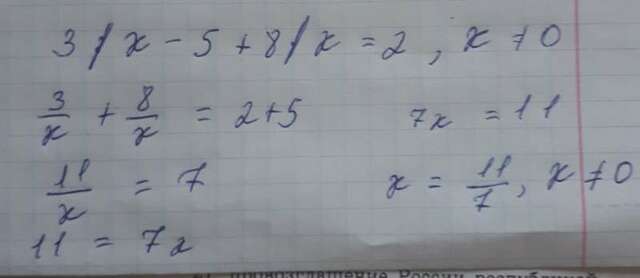 3/x - 5 + 8/x = 2, x ≠ 0
3/x + 8/x = 2+5
11/x = 7
11 = 7x
7x = 11
x = 11/7, x ≠ 0